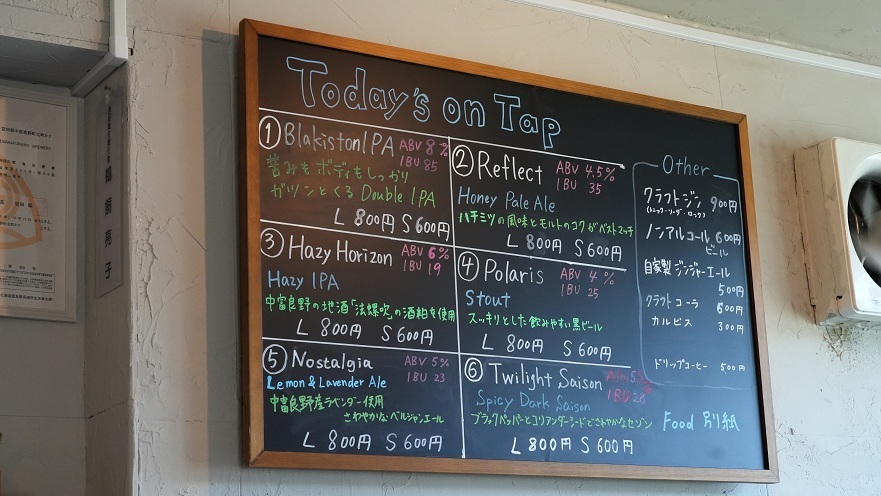 Today's on Tap
① Blakiston IPA ABV 8%
IBU 85
苦みもボディもしっかり
ガツンとくる Double IPA
L 800円 S 600円
② Reflect ABV 4.5%
IBU 35
Honey Pale Ale
ハチミツの風味とモルトのコクがベストマッチ
L 800円 S 600円
③ Hazy Horizon ABV 6%
IBU 19
Hazy IPA
中富良野の地酒「法螺吹」の酒粕を使用
L 800円 S 600円
④ Polaris ABV 4%
IBU 25
Stout
スッキリとした飲みやすい黒ビール
L 800円 S 600円
⑤ Nostalgia ABV 5%
IBU 23
Lemon & Lavender Ale
中富良野産ラベンダー使用
さわやかなベルジャンエール
L 800円 S 600円
⑥ Twilight Saison
IBU 28
Spicy Dark Saison
ブラックペッパーとコリアンダーシードでさわやかなセゾン
L 800円 S 600円
Other
クラフトジン 900円
(トニック・ソーダ・ロック)
ノンアルコール 600円
ビール
自家製ジンジャーエール
500円
クラフトコーラ 600円
カルピス 300円
ドリップコーヒー 500円
Food 別紙